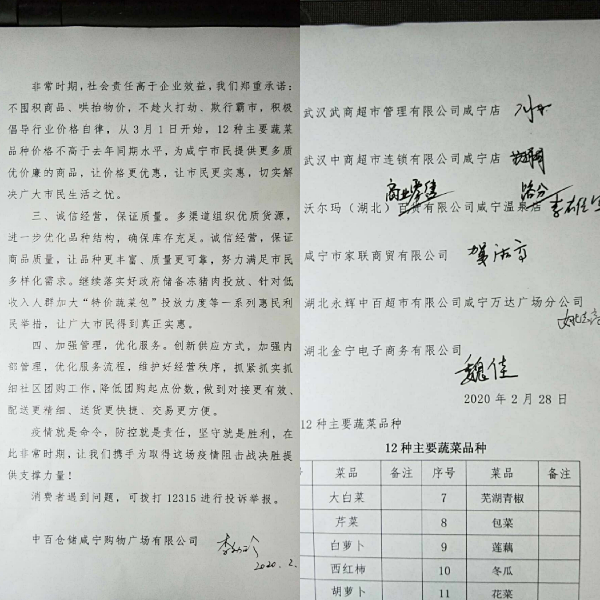 非常时期,社会责任高于企业效益,我们郑重承诺:
不囤积商品、哄抬物价,不趁火打劫、欺行霸市,积极
倡导行业价格自律,从3月1日开始,12种主要蔬菜
品种价格不高于去年同期水平,为咸宁市民提供更多质
优价廉的商品,让价格更优惠,让市民更实惠,切实解
决广大市民生活之忧。
三、诚信经营,保证质量。多渠道组织优质货源,
进一步优化品种结构,确保库存充足。诚信经营,保证
商品质量,让品种更丰富、质量更可靠,努力满足市民
多样化需求。继续落实好政府储备冻猪肉投放、针对低
收入人群加大“特价蔬菜包”投放力度等一系列惠民利
民举措,让广大市民得到真正实惠。
四、加强管理,优化服务。创新供应方式,加强内
部管理,优化服务流程,维护好经营秩序,抓紧抓实抓
细社区团购工作,降低团购起点份数,做到对接更有效、
配送更精细、送货更快捷、交易更方便。
疫情就是命令,防控就是责任,坚守就是胜利,在
此非常时期,让我们携手为取得这场疫情阻击战决胜提
供支撑力量!
消费者遇到问题,可拨打12315进行投诉举报。
中百仓储咸宁购物广场有限公司
2020.2.
武汉武商超市管理有限公司咸宁店
武汉中商超市连锁有限公司咸宁店
商业零售
沃尔玛(湖北)百货有限公司咸宁温泉店
咸宁市家联商贸有限公司
湖北永辉中百超市有限公司咸宁万达广场分公司
湖北金宁电子商务有限公司
魏佳
2020年2月28日
12种主要蔬菜品种
12种主要蔬菜品种
号 菜品 备注 序号 菜品 备注
大白菜 7 芜湖青椒
芹菜 8 包菜
白萝卜 9 莲藕
西红柿 10 冬瓜
胡萝卜 11 花菜